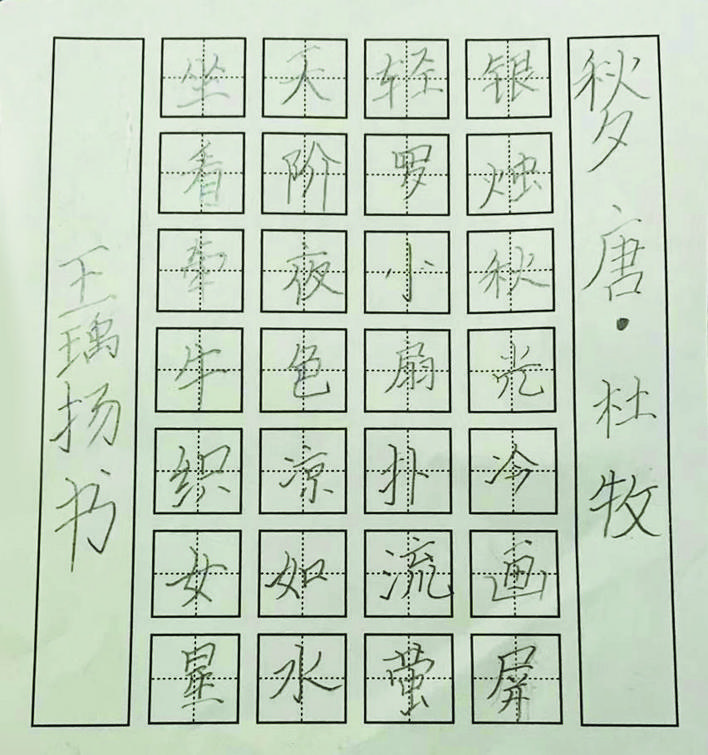 秋夕 唐·杜牧
银烛秋光冷画屏
轻罗小扇扑流萤
天阶夜色凉如水
坐看牵牛织女星
王瑀扬书